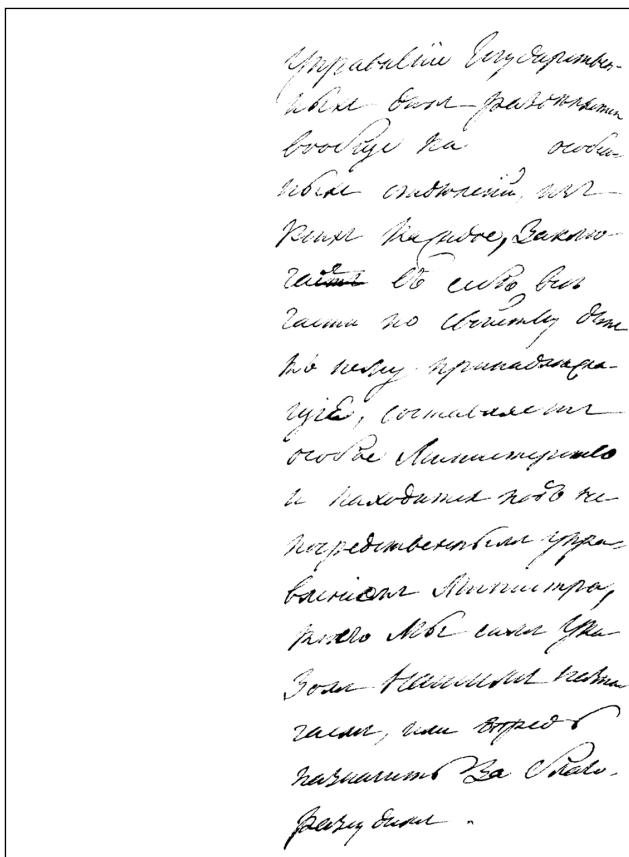 Управленiе Государствен-
ныхъ дѣлъ раздѣляется
вообще на особен-
ныя отдѣленiя, изъ
коихъ каждое, Заклю-
чая въ себѣ всѣ
части по свойству дѣлъ
къ нему принадлежа-
щiя, составляетъ
особое Министерство
и находится подъ не
посредственнымъ упра-
вленiемъ Министра,
коего Мы симъ Ука
зомъ Нашимъ назна
чаемъ, или впредь
назначить За благо-
разсудимъ.